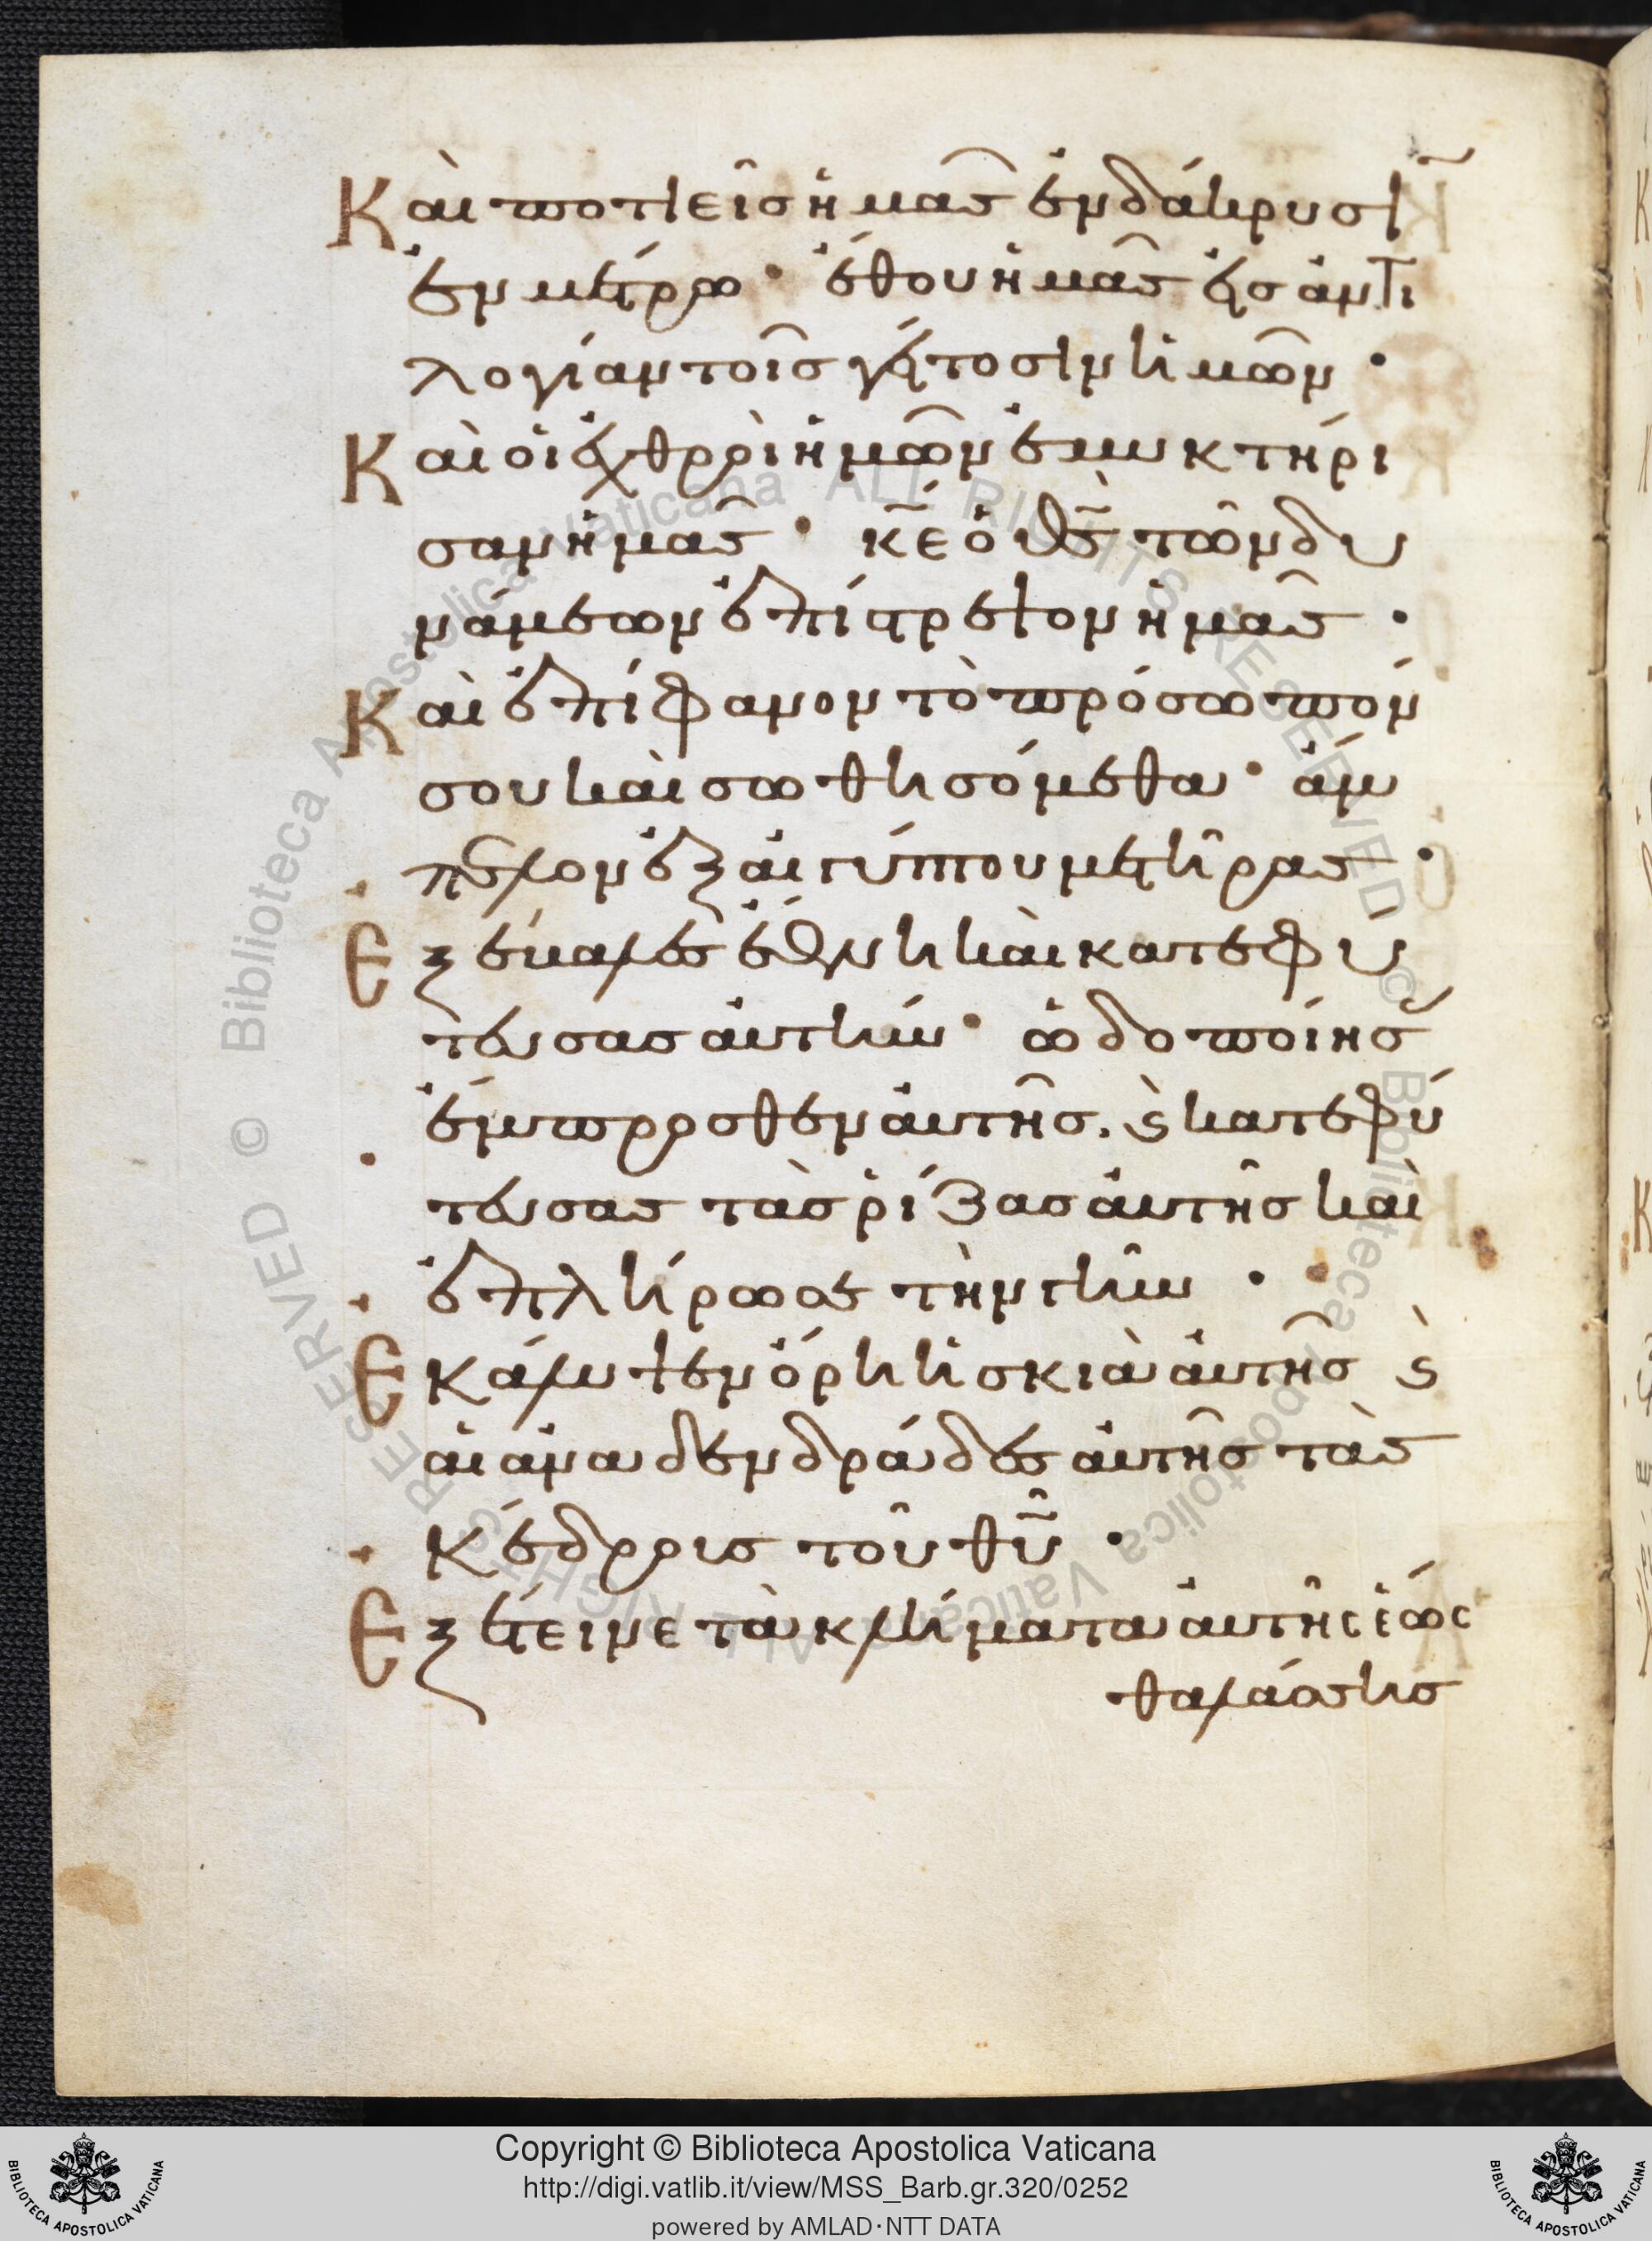 Καὶ ποτιεῖς ἡμᾶς ἐν δάκρυσῖ
ἐν μέτρω· ἔθου ἡμᾶς εἰς ἀντι
λογίαν τοῖς γείτοσιν ἡμῶν·
Καὶ οἱ ἐχθροὶ ἡμῶν ἐμυκτήρι
σαν ἡμᾶς· κ̅ε̅ ὁ θ̅ς̅ τῶν δυ
νάμεων ἐπίστρεψον ἡμᾶς·
Καὶ ἐπίφανον τὸ πρόσωπόν
σου καὶ σωθησόμεθα· ἄμ
πελον ἐξ αἰγύπτου μετῆρας·
Ἐξέβαλες ἔθνη καὶ κατεφύ
τευσας ἀυτήν· ὡδοποίησ
ἔμπροσθεν ἀυτῆς. ϛ κατεφύ
τευσας τὰς ῥίζας ἀυτῆς καὶ
ἐπλήρωσε τὴν γῆν·
Ἐκάλυψεν ὄρη ἡ σκιὰ ἀυτῆς ϛ
αἱ ἀναδενδράδες ἀυτῆς τὰς
κέδρους τοῦ θ̅υ̅·
Ἐξέτεινε τὰ κλήματα ἀυτῆς ἑως
θαλάσσης
Copyright © Biblioteca Apostolica Vaticana
http://digi.vatlib.it/view/MSS_Barb.gr.320/0252
powered by AMLAD·NTT DATA
BIBLIOTECA APOSTOLICA VATICANA
BIBLIOTECA APOSTOLICA VATICANA